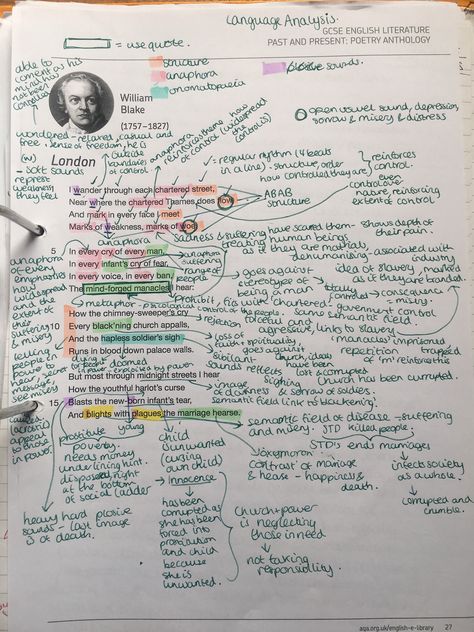 Language Analysis.
GCSE ENGLISH LITERATURE
PAST AND PRESENT: POETRY ANTHOLOGY
= use quote.
structure
anaphora
onomatopoeia
plosive sounds.
able to
coment as his
mind has
not been
controlled
William
Blake
(1757–1827)
open vowel sound, depression,
sorrow & misery & distress
wondered - relaxed, casual and
free. sense of freedom, he is
outside
boundaries
of control.
anaphora
reinforces theme
how widespread
control is)
(w)
- soft
sounds
represt
weakness
they feel
London
= regular rhythm (4 beats
in a line) - structure, order
how controlled they are
reinforces
control.
even
control over
nature, reinforcing
extent of control
I wander through each chartered street,
Near where the chartered Thames does flow
And mark in every face I meet
Marks of weakness, marks of woe.
ABAB
structure
anaphora
Sadness & suffering have scarred them - shows depth of
their pain.
5
In every cry of every man,
In every infant's cry of fear,
In every voice, in every ban,
The mind-forged manacles I hear:
anaphora
of every
emphasises
how
widespread
the extent
of the
suffering
& misery
anaphora
suffering
range of
people
treating human beings
as if they are materials
dehumanising
associated with
industry
idea of slavery, marked
as if they are traded
goes against
stereotype of
being a man
totally
controlled
consequence
= misery.
metaphor
prohibit, fits with 'chartered'
government control
control of the people.
same semantic field.
How the chimney-sweeper's cry
10
Every black'ning church appalls,
And the hapless soldier's sigh
Runs in blood down palace walls.
rejection
forceful and
aggressive, links to slavery
manacles' imprisoned
trapped
loss of
faith + spirituality
goes against
church, ideas
have been
lost & corrupted
repetition
of 'm' reinforces
Church has been currupted
sibilant
sounds
reflects
image sighing
of darkness & sorrow of soldiers.
semantic field link to 'blackening'.
But most through midnight streets I hear
How the youthful harlot's curse
15
Blasts the new-born infant's tear,
And blights with plagues the marriage hearse.
semantic field of disease - suffering
and misery. STD killed people.
STD's ends marriages
infects society
as a whole.
corrupted and
crumble.
prostitute
young
poverty.
needs money
underlining hint.
disposed, right
at the bottom
of social ladder
child
unwanted
(cursing
own child)
Innocence
has been
corrupted as
she has been
forced into
prostitution
and child
because
she is
unwanted.
oxymoron
contrast of mariage
& hearse - happiness &
death.
church + power
is neglecting
those in need
not taking
responsility.
heavy hard plosive
sounds - last image
is of death.
aqa.org.uk/english-e-library
27